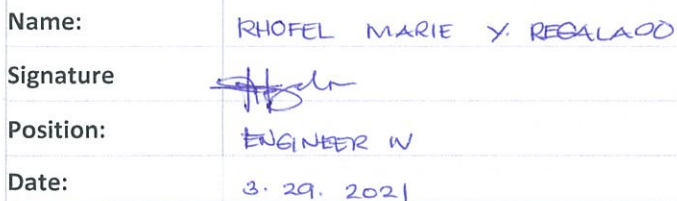 Name: RHOFEL MARIE Y. REGALADO
Signature
Position: ENGINEER IV
Date: 3. 29. 2021